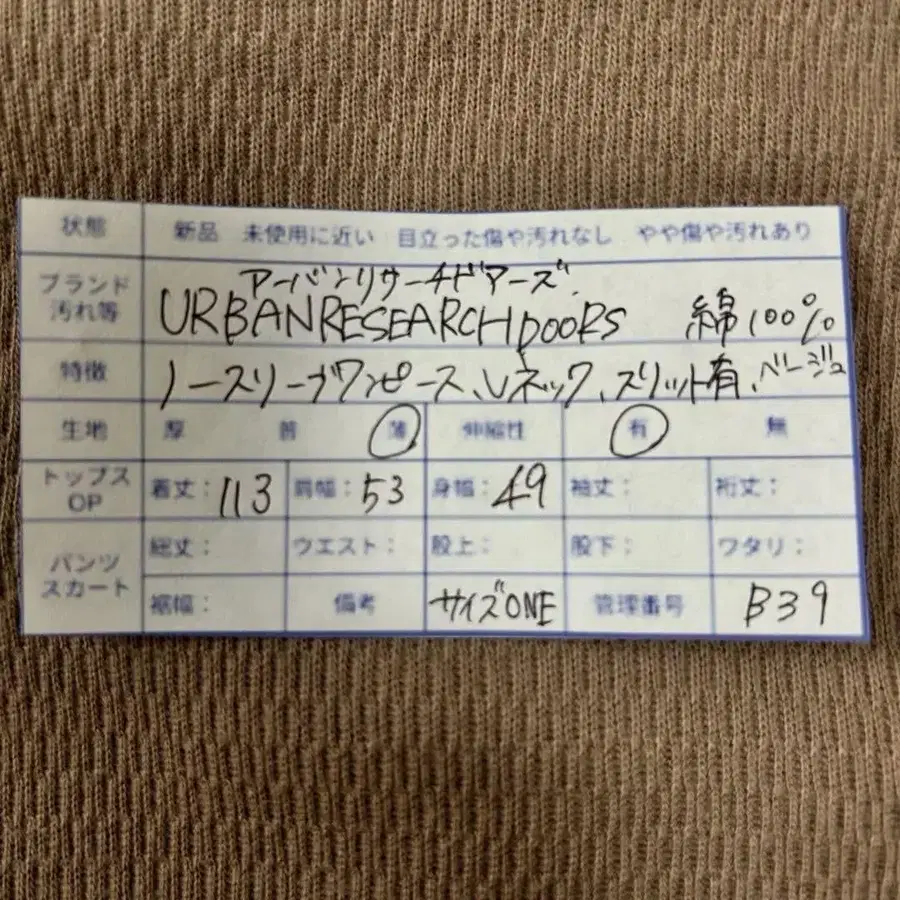 状態 新品 未使用に近い 目立った傷や汚れなし やや傷や汚れあり
ブランド 汚れ等 アーバンリサーチドアーズ
URBANRESEARCHDOORS 綿100%
特徴 ノースリーブワンピース、Vネック、スリット有、ベージュ
生地 厚 普 薄 伸縮性 有 無
トップス OP 着丈: 113 肩幅: 53 身幅: 49 袖丈: 裄丈:
パンツ スカート 総丈: ウエスト: 股上: 股下: ワタリ:
裾幅: 備考 サイズONE 管理番号 B39